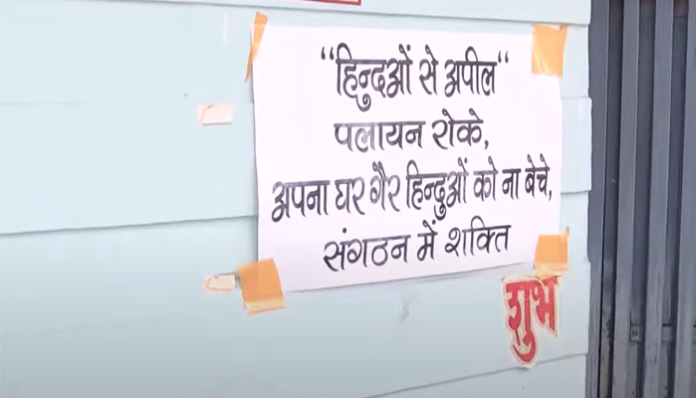 “हिन्दुओं से अपील“
पलायन रोके,
अपना घर गैर हिन्दुओं को ना बेचे,
संगठन में शक्ति
शुभ